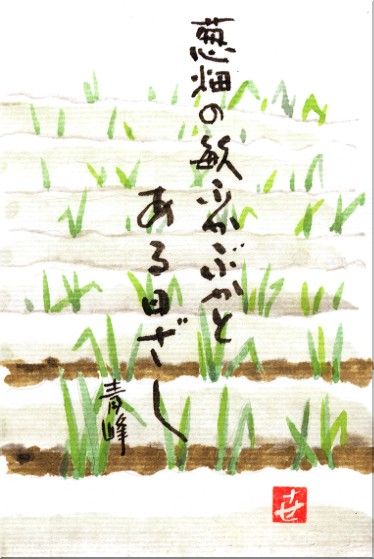 葱畑の畝ふかぶかと
ある日ざし
青峰